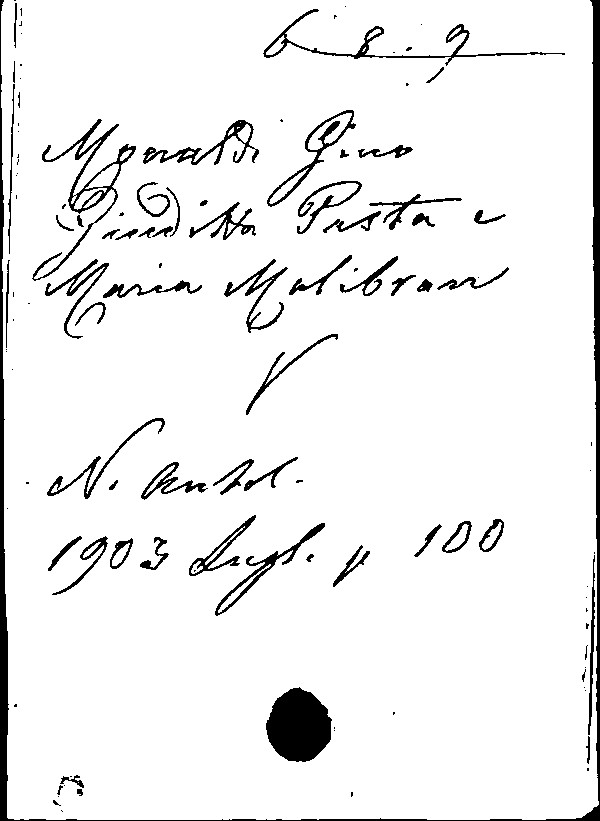 6. 8. 9
Monaldi Gino
Giuditta Pasta e
Maria Malibran
V
N. Antol.
1903 Lugl. p 100